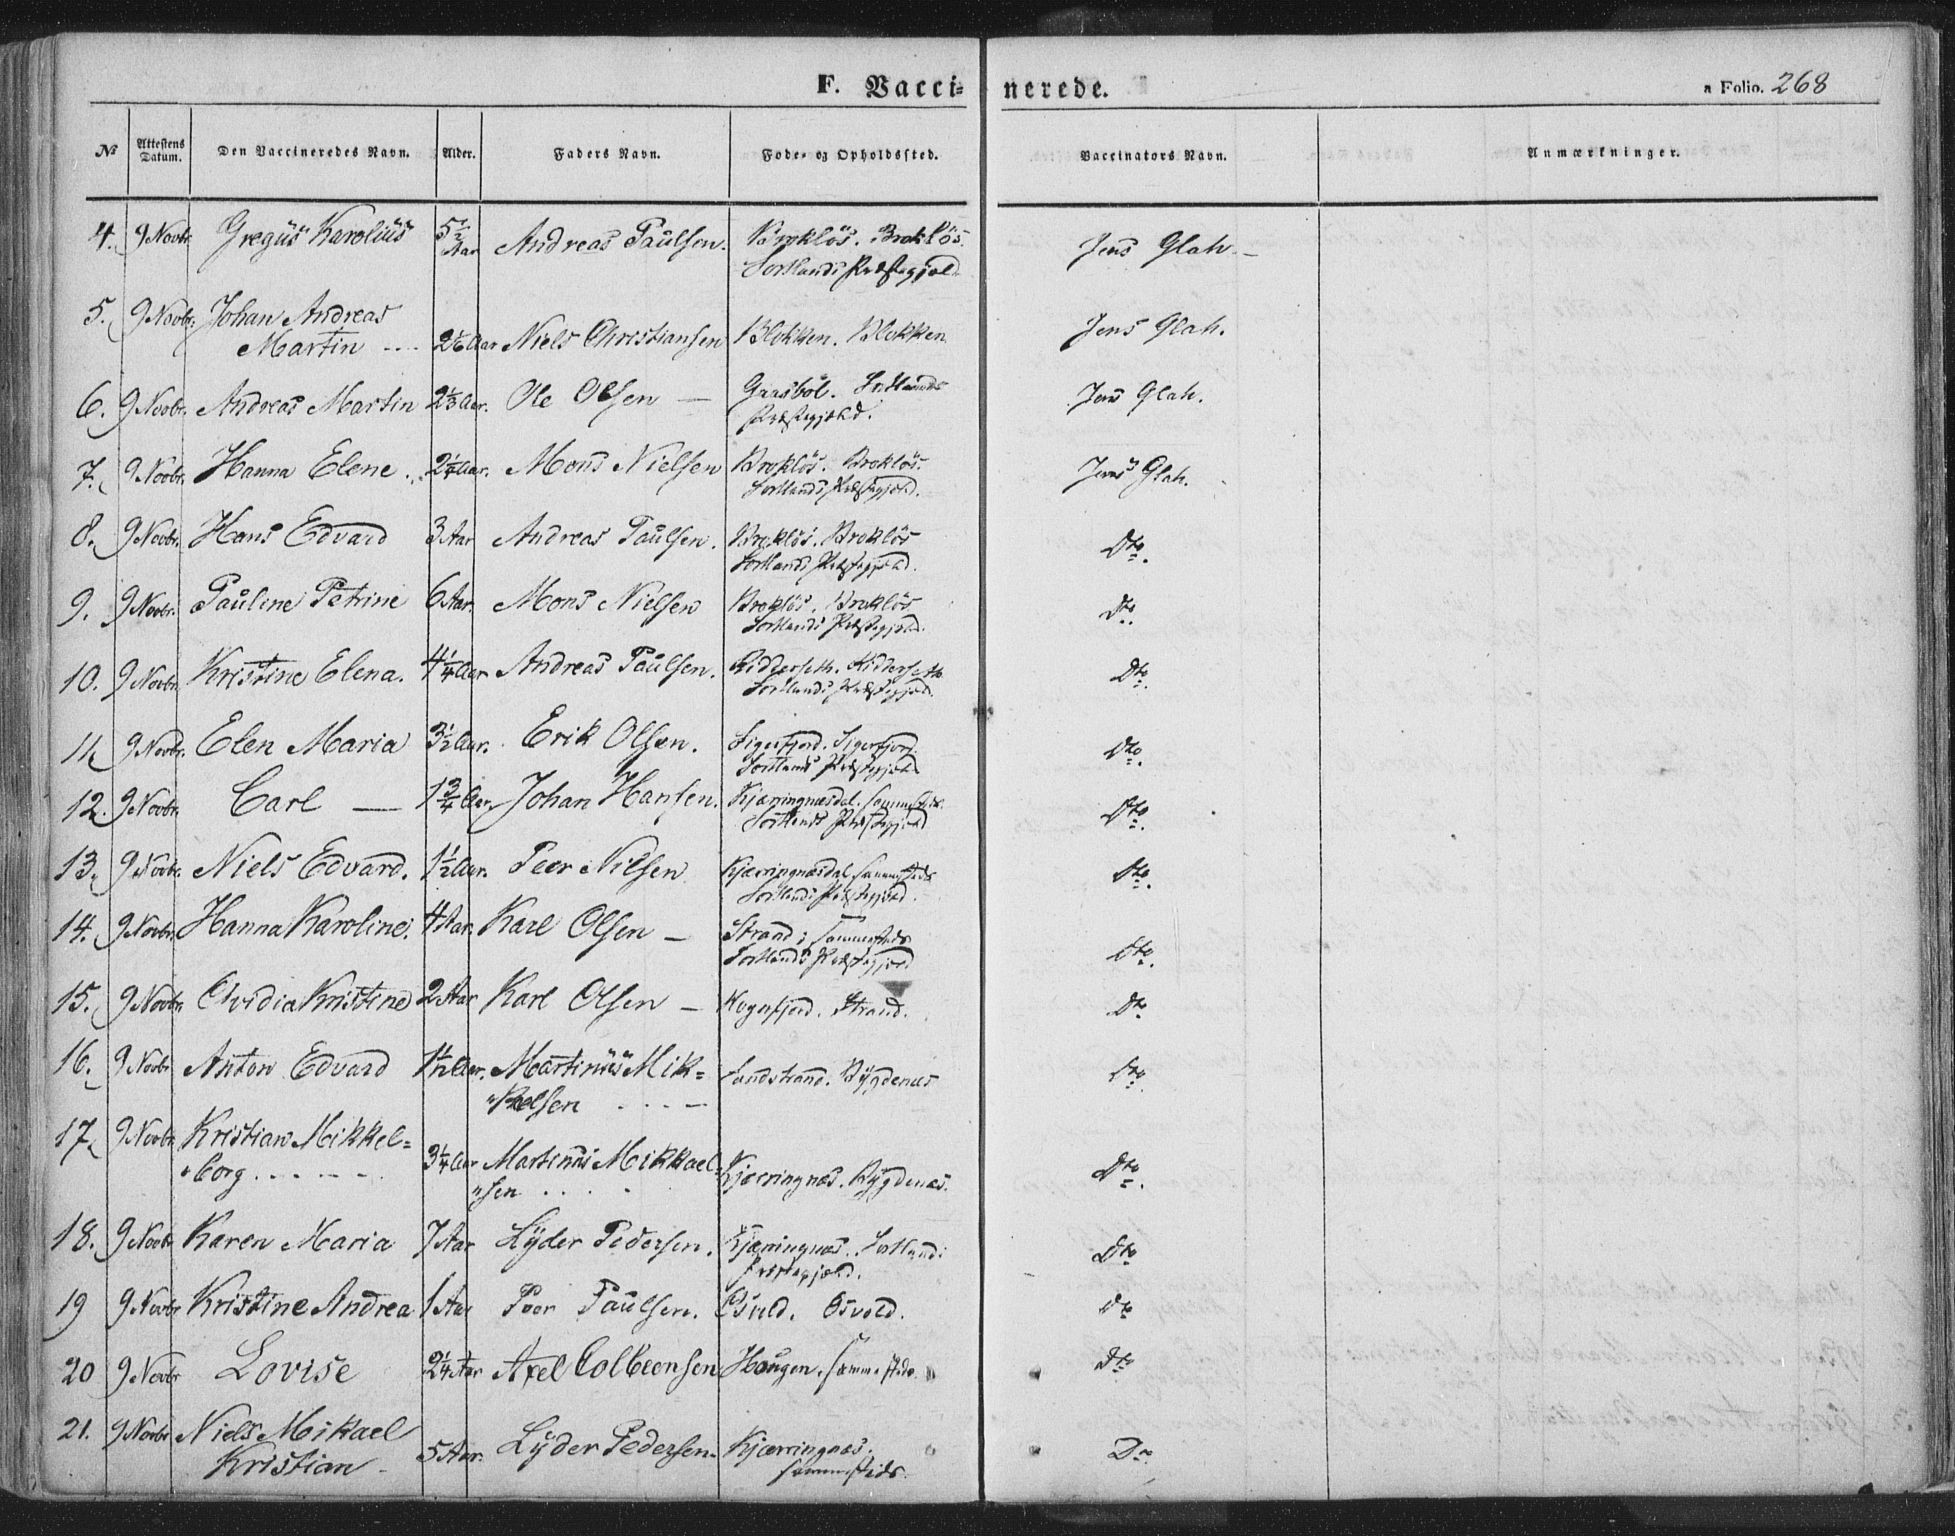 F. Vaccinerede. a Folio. 268
No Attestens Datum. Den Vaccineredes Navn. Alder. Faders Navn. Føde- og Opholdssted. Vaccinators Navn. Anmærkninger.
4. 9 Novbr. Gregus Karolus 5½ Aar Andreas Paulsen. Brokløs. Brokløs. Jens Glah.
Sortlands Præstegjæld
5. 9 Novbr. Johan Andreas
Martin 2 1/6 Aar Niels Christiansen Blokken. Blokken Jens Glah.
6. 9 Novbr. Andreas Martin 2⅓ Aar. Ole Olsen — Gaasbøl. Sortlands Jens Glah.
Præstegjæld.
7. 9 Novbr. Hanna Elene 2¼ Aar. Mons Nielsen Brokløs. Brokløs. Jens Glah.
Sortlands Præstegjæld.
8. 9 Novbr. Hans Edvard 3 Aar Andreas Paulsen. Brokløs. Brokløs Dto.
Sortlands Præstegjæld.
9. 9 Novbr. Pauline Petrine 6 Aar. Mons Nielsen Brokløs. Brokløs Dto.
Sortlands Præstegjæld.
10. 9 Novbr. Kristine Elena. 4¼ Aar Andreas Paulsen. Ridderseth. Ridderseth Dto.
Sortlands Præstegjæld.
11. 9 Novbr. Elen Maria 3½ Aar. Erik Olsen. Sigerfjord. Sigerfjord. Dto.
Sortlands Præstegjæld
12. 9 Novbr. Carl — 1¾ Aar. Johan Hansen. Kjærringnæsdal. sammesteds. Dto.
Sortlands Præstegjæld
13. 9 Novbr. Niels Edvard. 1½ Aar. Peer Nilsen Kjærringnæsdal sammesteds Dto.
Sortlands Præstegjæld.
14. 9 Novbr. Hanna Karoline. 4 Aar. Karl Olsen — Strand; sammesteds Dto.
Sortlands Præstegjæld
15. 9 Novbr. Ovidia Kristine 2 Aar Karl Olsen — Hognfjord. Strand. Dto
16. 9 Novbr Anton Edvard Aar. Martinus Mik=
"kelsen Sandstrand. Bygdenæs Dto.
17. 9 Novbr. Kristian Mikkel=
"borg 3¼ Aar Martinus Mikkael=
"sen Kjærringnæs. Bygdenæs. Dto.
18. 9 Novbr Karen Maria 7 Aar Lyder Pedersen. Kjærringnæs. Sortlands Dto
Præstegjæld.
19 9 Novbr Kristine Andrea 1 Aar Peer Paulsen. Osvold. Osvold. Dto
20 9 Novbr Lovise 2¼ Aar Axel Colbeensen Haugen. sammesteds. Dto
21. 9 Novbr Niels Mikael
Kristian 5 Aar. Lyder Pedersen. Kjærringnæs. Do
sammesteds.